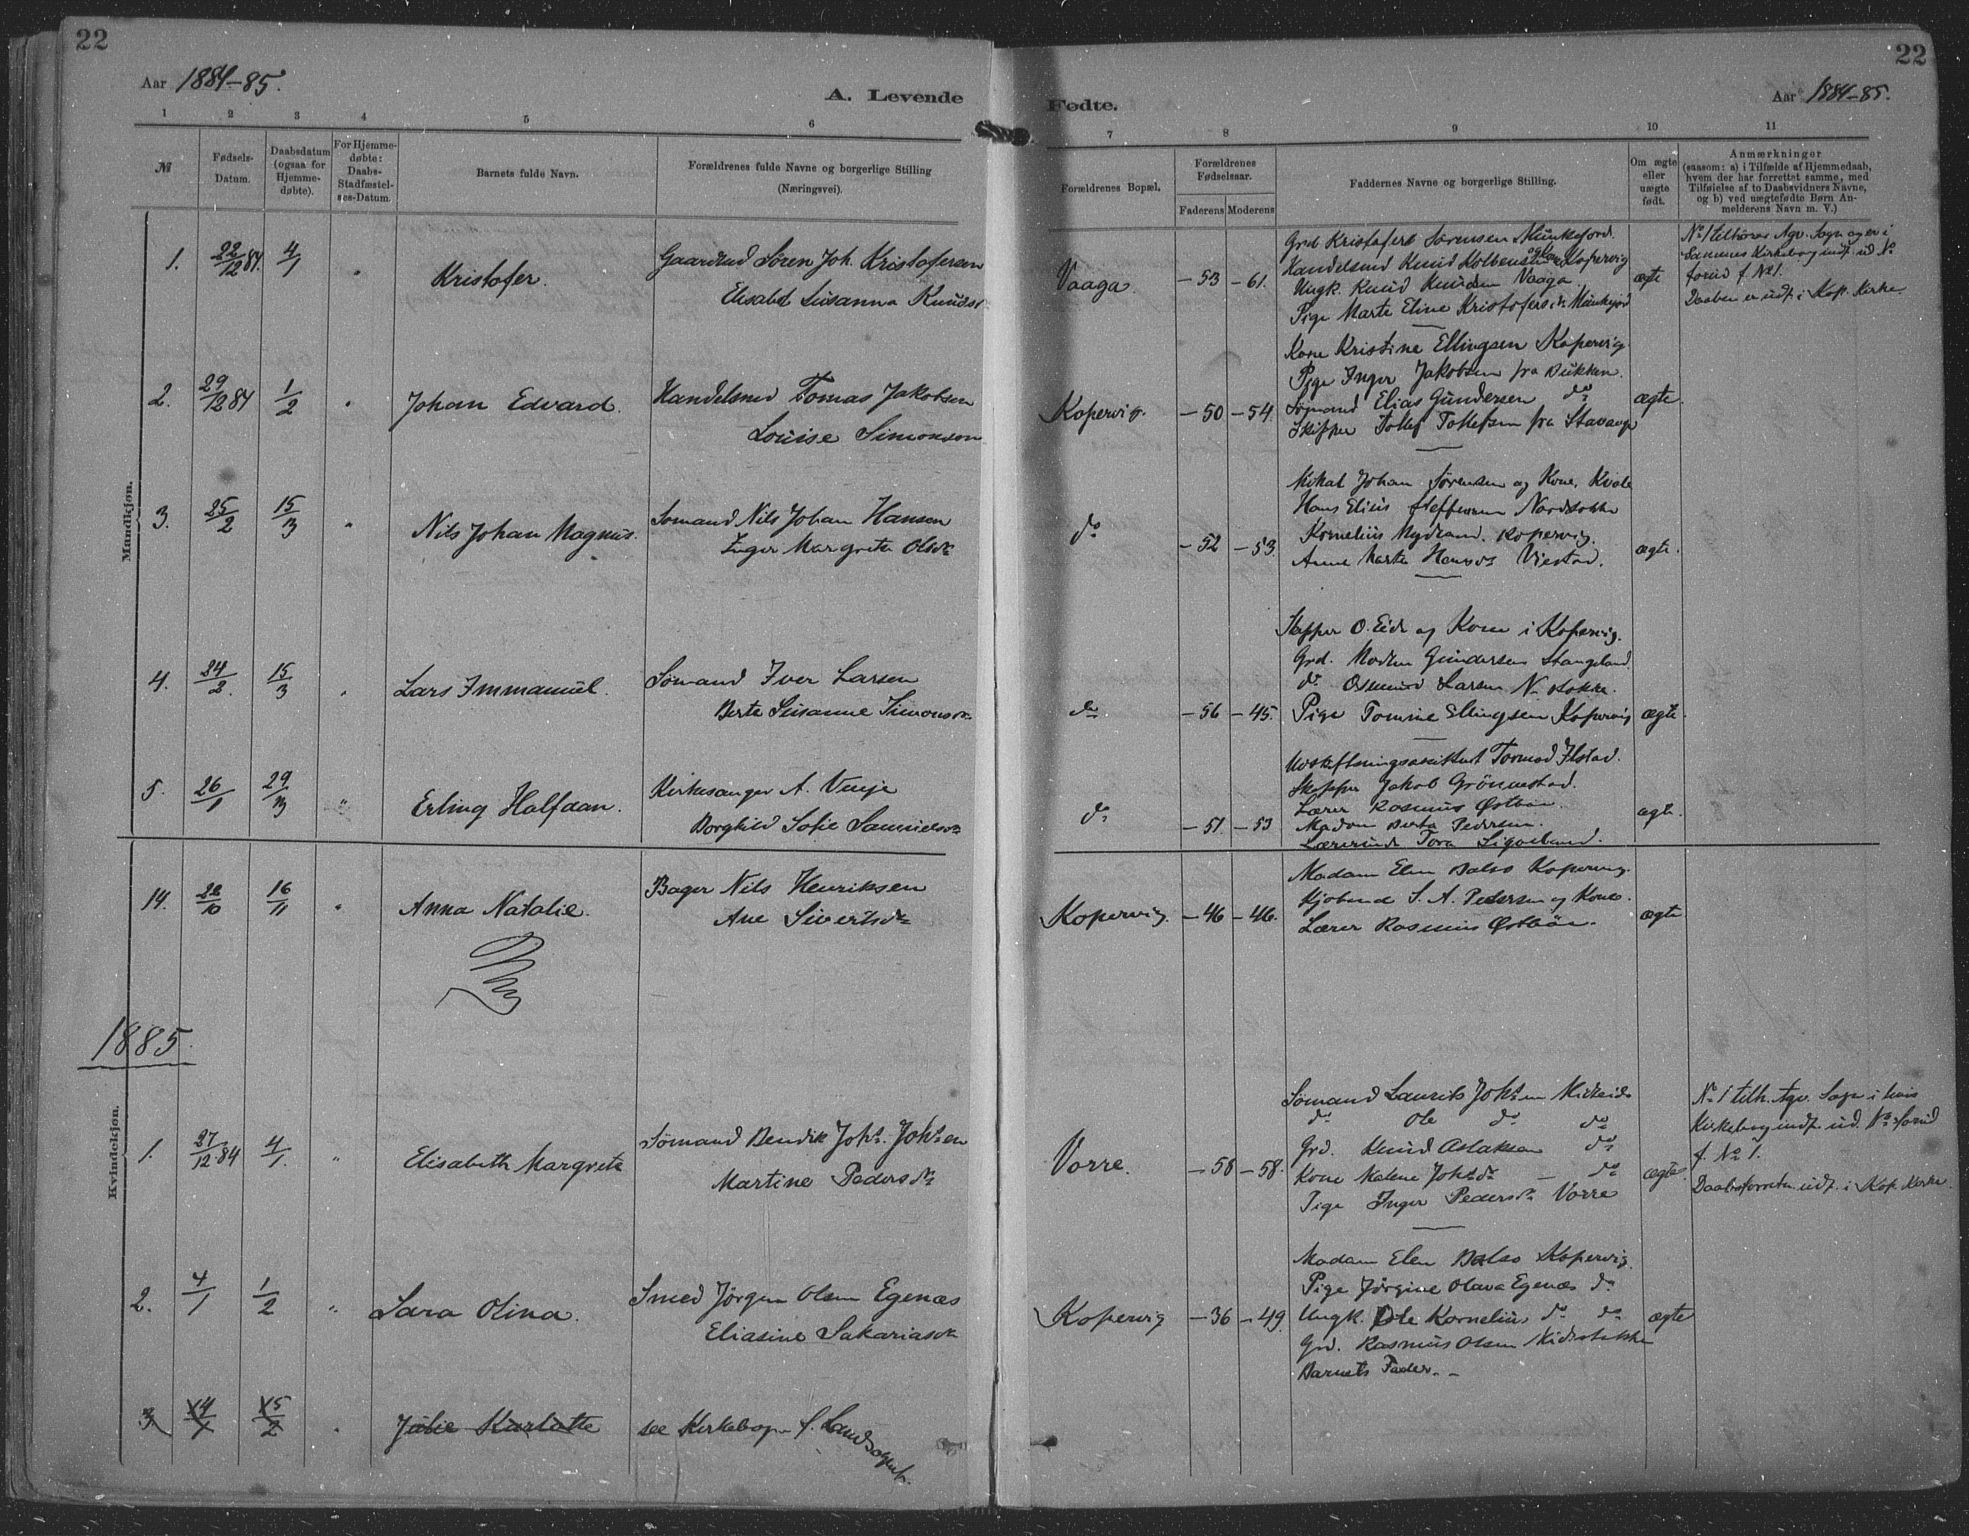 22
22
Aar 1884-85.
A. Levende
Fødte.
Aar 1884-85.
1 2 3 4 5 6
7 8 9 10 11
№
Fødsels-
Datum.
Daabsdatum
(ogsaa for
Hjemme-
døbte).
For Hjemme-
døbte:
Daabs-
Stadfæstel-
ses-Datum.
Barnets fulde Navn.
Forældrenes fulde Navne og borgerlige Stilling
(Næringsvei).
Forældrenes Bopæl.
Forældrenes
Fødselsaar.
Faderens Moderens
Faddernes Navne og borgerlige Stilling.
Om ægte
eller
uægte
født.
Anmærkninger
(saasom: a) i Tilfælde af Hjemmedaab,
hvem der har forrettet samme, med
Tilføielse af to Daabsvidners Navne,
og b) ved uægtefødte Børn An-
melderens Navn m. V.)
Mandkjøn.
1. 22/12 84. 4/1 "
Kristofer.
Gaardmd Søren Joh. Kristofersen
Elisabet Susanna Knudsd.
Vaaga. -53 -61.
Grd Kristofer Sørensen Munkejord.
Handelsmd Knud Kolbensen Kopervig
Ungk. Knud Knudsen Vaaga.
Pige Marte Eline Kristofersdr Munkejord
ægte
No 1 tilhører Agv. Sogn og er i
Sammes Kirkebog indf. ud No
forud f. No 1.
Daaben er udf. i Kop. Kirke.
2. 29/12 84 1/2 "
Johan Edvard.
Handelsmd Tomas Jakobsen
Louise Simonsen
Kopervig. -50 -54.
Kone Kristine Ellingsen Kopervig.
Pige Inger Jakobsen fra Bukken.
Sømand Elias Gundersen do
Skipper Tollef Tollefsen fra Stavanger
ægte.
3. 25/2 15/3 "
Nils Johan Magnus.
Sømand Nils Johan Hansen
Inger Margrete Olsdr
do -52 -53.
Johan Sørensen og Kone, Kvale
Hans Elius Steffensen Nordstokke
Kornelius Kopervig.
Anne Marte Hansdr Viestad.
ægte.
4. 24/2. 15/3 "
Lars Immanuel.
Sømand Iver Larsen
Berte Susanne Simonsdr
do -56 -45.
Skipper O. Eide og Kone i Kopervig.
Grd. Gundersen Stangeland.
do Osmund Larsen N. Stokke.
Pige Tomine Ellingsen Kopervig
ægte.
5. 26/1 29/3 "
Erling Halfdan.
Kirkesanger A. Vinje
Borghild Sofie Samuelsdr
do -51. -53
Tormod
Skipper Jakob Grønnestad.
Lærer Rasmus Østbøe.
Madam Berta Pedersen.
Lærerinde Tora
ægte.
14. 28/10 16/11 "
Anna Natalie.
Bager Nils Henriksen
Ane Sivertsdr
Kopervig. -46 -46.
Madam Elen Kopervig.
S. A. Pedersen og Kone.
Lærer Rasmus Østbøe.
ægte
1885.
Kvindekjøn.
1. 27/12 84 4/1. "
Elisabeth Margrete
Sømand Bendik Johs. Johsen
Martine Pedersdr
Vorre. -58 -58.
Sømand Laurits Johsen
do Ole do do
Grd. Knud Aslaksen do
Kone Malene Johsdr — do
Pige Inger Pedersdr Vorre
ægte
No 1 tilh. Agv. Sogn i hvis
Kirkebog indf. ud. No forud
f. No 1.
Daabsforretn. udf. i Kop. Kirke.
2. 4/1 1/2 "
Sara Olina.
Smed Jørgen Olsen Egenæs
Eliasine Sakariasdr
Kopervig -36 -49.
Madam Elen Kopervig.
Pige Jørgine Olava Egenæs do
Ungk. Ole Kornelius do do
Grd. Rasmus Olsen Midtstokke
Barnets Fader. -
ægte
3. 14/1 15/2 "
Julie Karlotte
see Kirkebogn f. Landsognet.